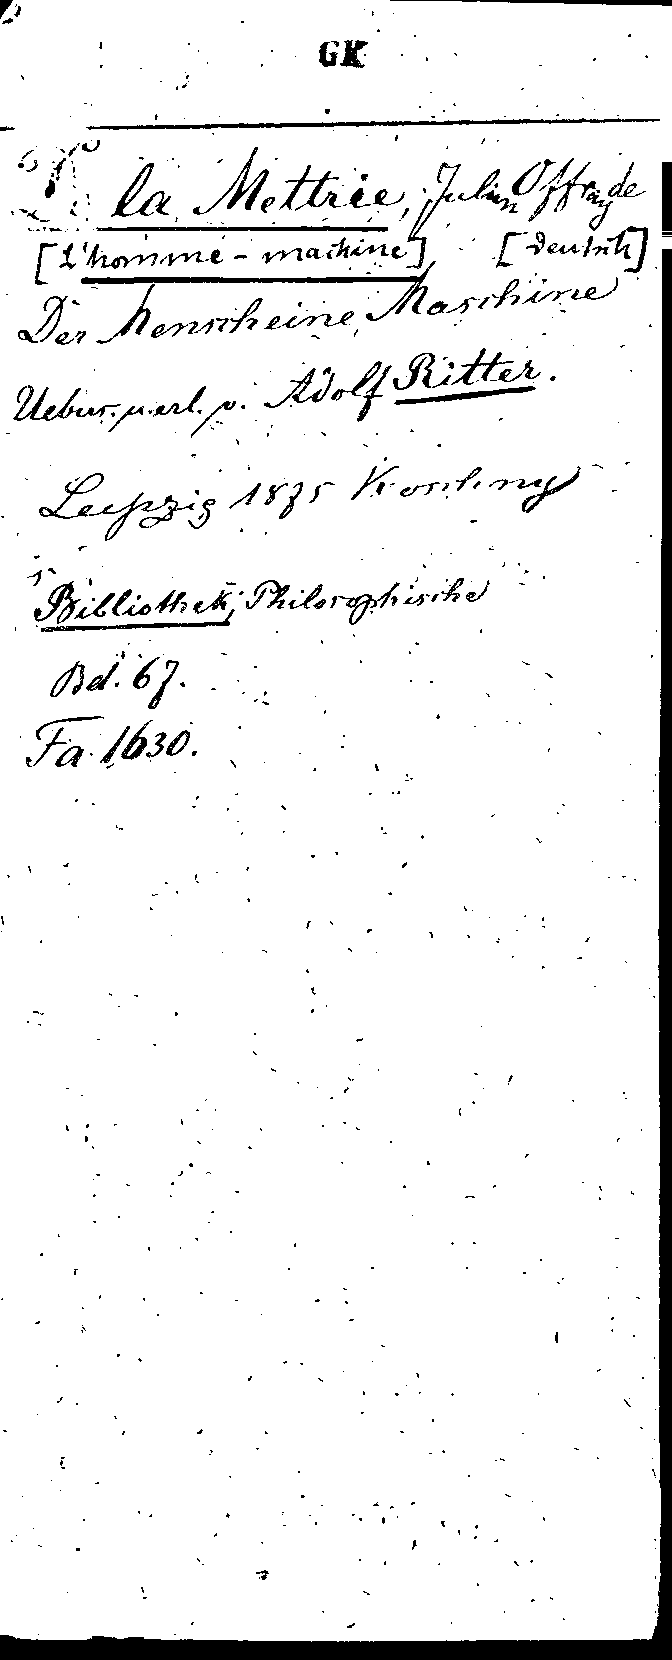 GK
la Mettrie, Julien Offray de
[L'homme-machine] [deutsch]
Der Mensch eine Maschine
Uebers. u. erl. v. Adolf Ritter.
Leipzig 1875 Koschny
Bibliothek, Philosophische
Bd. 67.
Fa 1630.